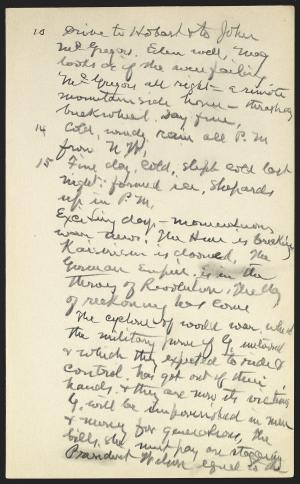 13 Drive to Hobart & to John
McGregors. Eden well, Mag
looks as if she were failing
McGregors all right – a remote
mountain side home – threshing
buckwheat. Day fine,
14 Cold, windy, rain all P.M.
from N.W.
15 Fine day, cold, slept cold last
night; formed ice, Shepards
up in P.M.
Exciting day – momentous
war news. The Hun is breaking
Kaiserism is doomed, The
German Empire is in the
throes of Revolution. The day
of reckoning has come
The cyclone of world war, which
the military power of G. unloosed
& which they expected to ride &
control has got out of their
hands, & they are now its victims
G. will be impoverished in men
& money for generations, the
bills she must pay are staggering
President Wilson equal to the